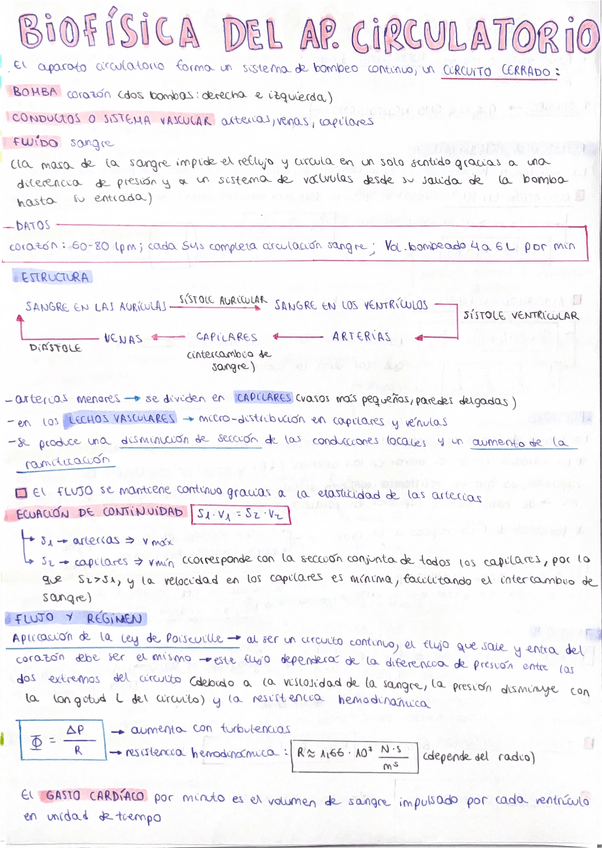 BIOFÍSICA DEL AP. CIRCULATORIO
El aparato circulatorio forma un sistema de bombeo continuo, un CIRCUITO CERRADO:
BOMBA corazón (dos bombas: derecha e izquierda)
CONDUCTOS O SISTEMA VASCULAR arterias, venas, capilares
FLUÍDO sangre
(la masa de la sangre impide el reflujo y circula en un solo sentido gracias a una
diferencia de presión y a un sistema de válvulas desde su salida de la bomba
hasta su entrada)
DATOS
corazón: 60-80 lpm; cada 54s completa circulación sangre; Vol. bombeado 4 a 6 L por min
ESTRUCTURA
SANGRE EN LAS AURÍCULAS SÍSTOLE AURICULAR SANGRE EN LOS VENTRÍCULOS
SÍSTOLE VENTRICULAR
DIÁSTOLE VENAS ← CAPILARES ← ARTERIAS ←
(intercambio de
sangre)
- arterias menores → se dividen en CAPILARES (vasos más pequeños, paredes delgadas)
- en los LECHOS VASCULARES → micro-distribución en capilares y vénulas
- se produce una disminución de sección de las conducciones locales y un aumento de la
ramificación
El FLUJO se mantiene continuo gracias a la elasticidad de las arterias
ECUACIÓN DE CONTINUIDAD S1 · V1 = S2 · V2
→ S1 → arterias ⇒ v máx
→ S2 → capilares ⇒ v mín (corresponde con la sección conjunta de todos los capilares, por lo
que S2>S1, y la velocidad en los capilares es mínima, facilitando el intercambio de
sangre)
FLUJO Y RÉGIMEN
Aplicación de la Ley de Poiseuille → al ser un circuito continuo, el flujo que sale y entra del
corazón debe ser el mismo → este flujo dependerá de la diferencia de presión entre los
dos extremos del circuito (debido a la viscosidad de la sangre, la presión disminuye con
la longitud L del circuito) y la resistencia hemodinámica
Φ = ΔP / R → aumenta con turbulencias
→ resistencia hemodinámica: R ≈ 1,66 · 10⁷ N·s / m⁵ (depende del radio)
El GASTO CARDÍACO por minuto es el volumen de sangre impulsado por cada ventrículo
en unidad de tiempo